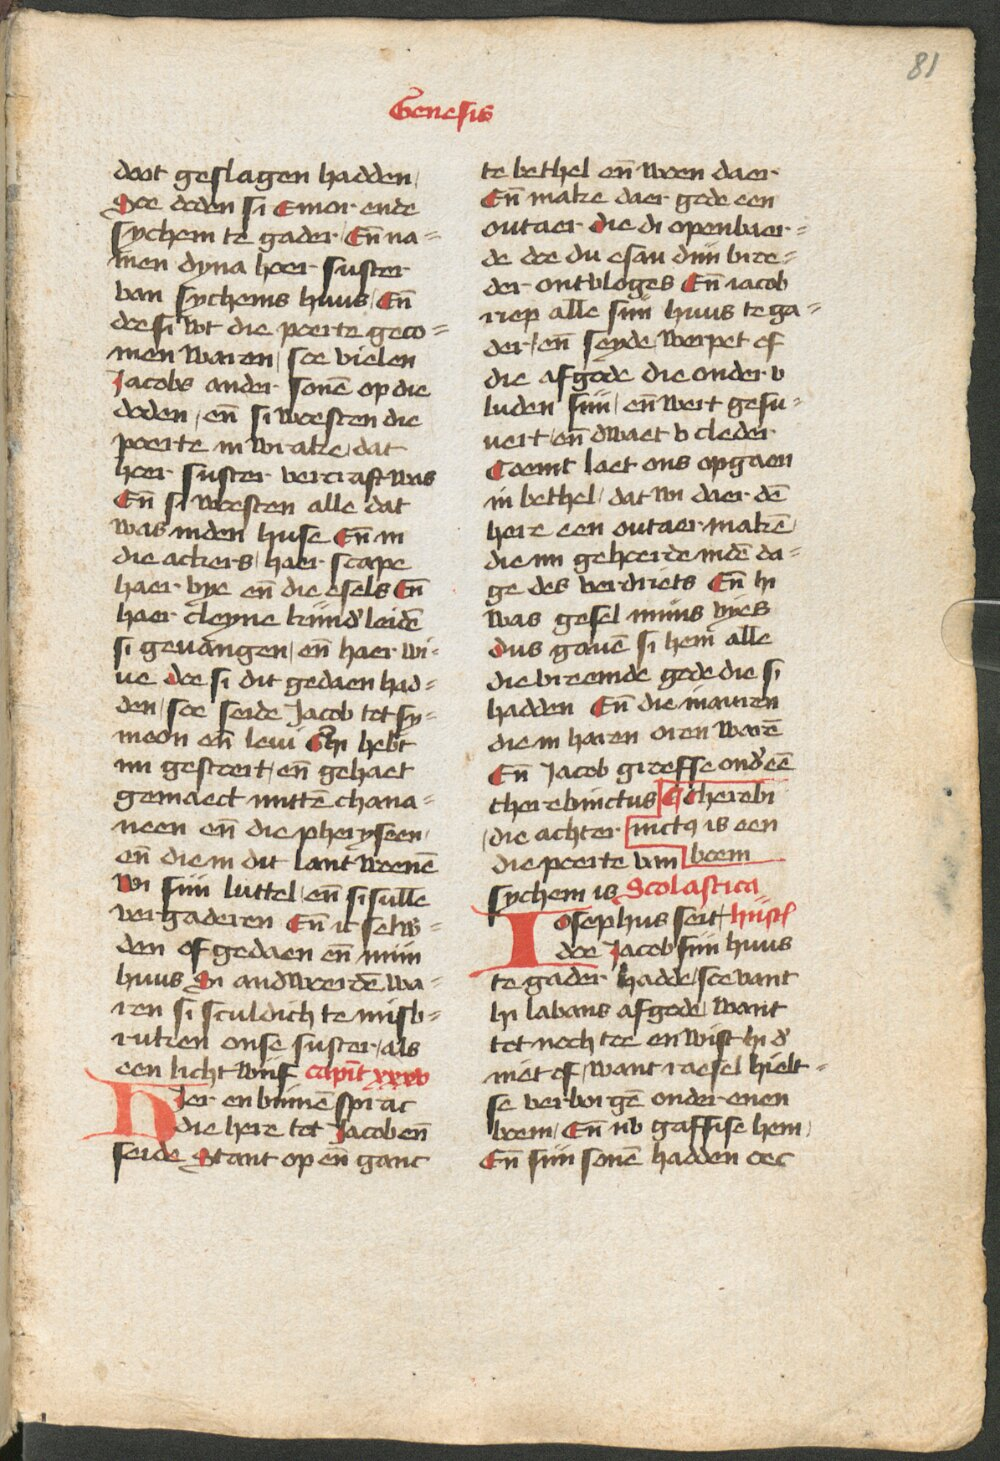 81
Genesis
doot geslagen hadden /
Doe doden si Emor ende
sychem te gader En̄ na=
men dyna hoer suster
van sychems huus / En̄
doe si wt die poerte geco=
men waren / soe vielen
Jacobs ander sonē op die
doden / en̄ si woesten die
poerte in wrake / dat
hoer suster vercraft was
En̄ si woesten alle dat
was inden huse En̄ in
die ackers / haer scape
haer vye en̄ die esels En̄
haer cleyne kind' leidē
si gevangen / en̄ haer wi-
ve Doe si dit gedaen had=
den / soe seide Jacob tot sy=
meon en̄ levi Ghi hebt
mi gestoert / en̄ gehaet
gemaect mittē chana=
neen en̄ die pheryseen /
en̄ die in dit lant woenē
Wi sijn luttel / en̄ si sullē
vergaderen En̄ ic sel w'=
den of gedaen en̄ mijn
huus Si andwoerdē wa=
ren si sculdich te misb=
ruken onse suster / als
een licht wijf capit xxxv
Hier en binnē sprac
die here tot Jacob en̄
seide Stant op en̄ ganc
te bethel en̄ woen daer
En̄ make daer gode een
outaer die di openbaer=
de doe du esau dijn broe=
der ontvloges En̄ iacob
riep alle sijn huus te ga=
der / en̄ seyde werpet of
die afgode die onder v
luden sijn / en̄ wert gesu=
uert / en̄ dwaet v cleder
Coemt laet ons opgaen
in bethel / dat wi daer dē
here een outaer makē /
die mi gehoerde indē da=
ge des verdriets En̄ hi
was gesel mijns weges
Dus gavē si hem alle
die vreemde gode die si
hadden En̄ die inauren
die in haren oren warē
En̄ Jacob groeffse ond' eē
therebinctus Cherebi
/ die achter nctꝯ is een
die poerte van boem
sychem is Scolastica
Iosephus seit hijst'
doe Jacob sijn huus
te gader hadde / soe vant
hi labans afgode / want
tot noch toe en wist hi d'
niet of / want raesel hielt=
se verborgē onder enen
boem / En̄ nv gaffse hem /
En̄ sijn sonē hadden oec